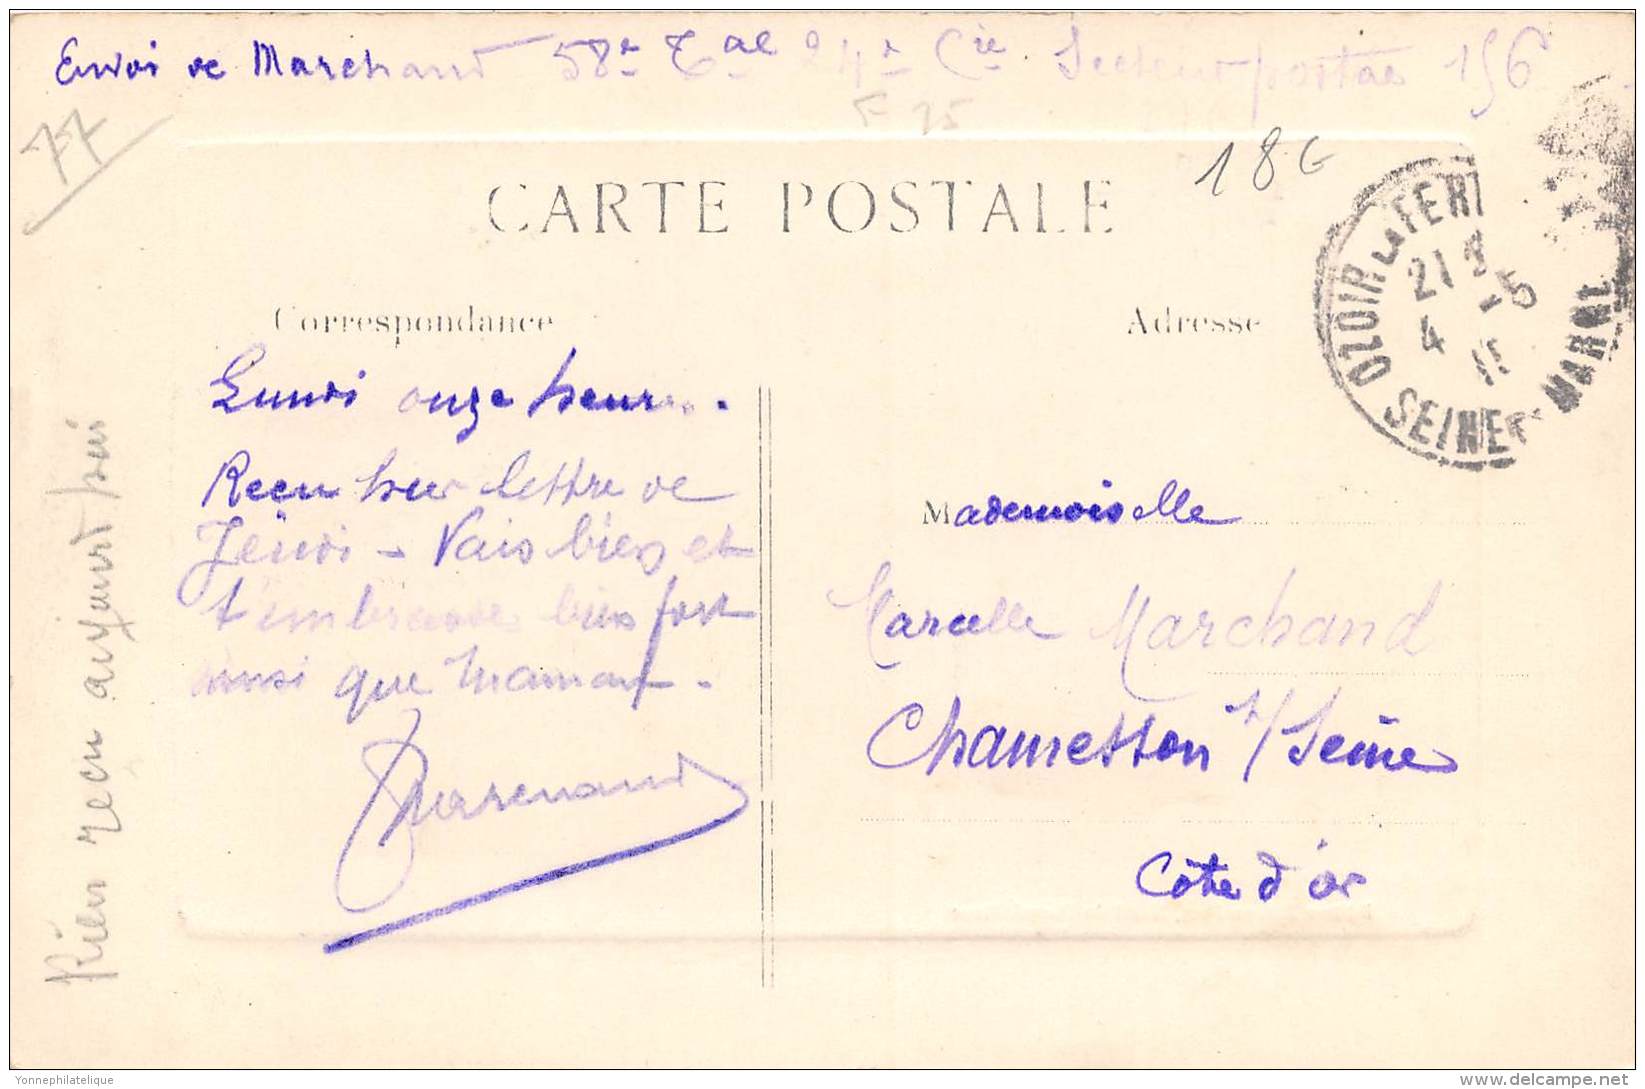 Envoi de Marchand 58e Tal 24e Cie Secteur postal 156
77
F 25
18 G
CARTE POSTALE
Correspondance
Adresse
OZOIR LA FERR
21 5
4 - 5
15
SEINE ET MARNE
Lundi onze heures.
Reçu hier lettre de
Jeudi - Vais bien et
t'embrasse bien fort
ainsi que maman.
Mademoiselle
Marcelle Marchand
Chamesson s/Seine
Côte d'or
Rien reçu aujourd'hui
Yonnephilatelique
delcampe.net